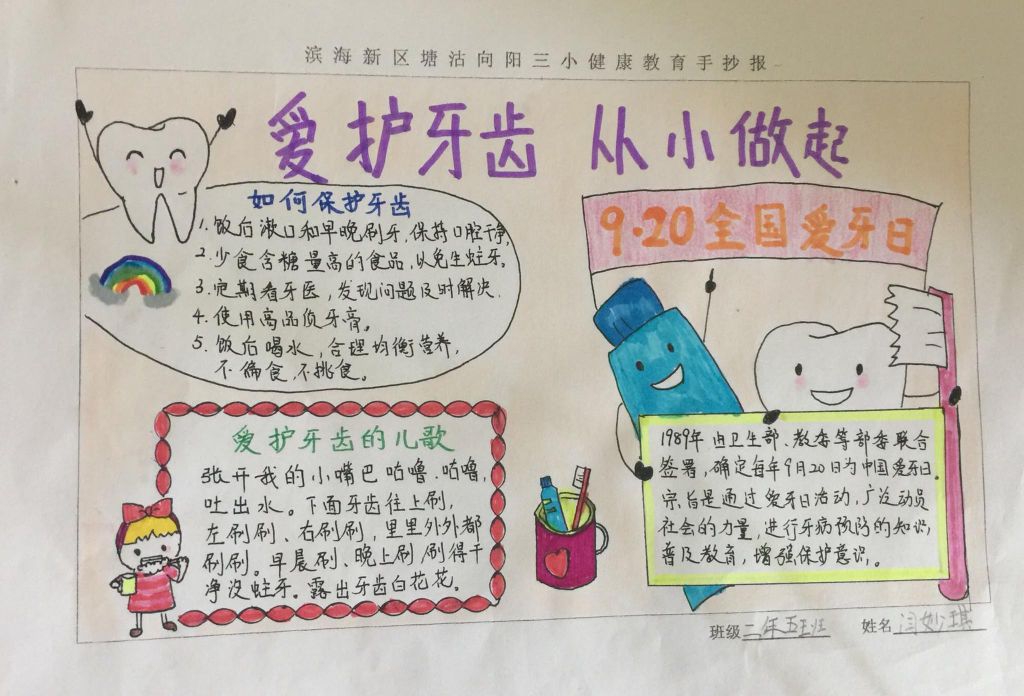 滨海新区塘沽向阳三小健康教育手抄报
爱护牙齿 从小做起
如何保护牙齿
1. 饭后漱口和早晚刷牙,保持口腔干净,
2. 少食含糖量高的食品,以免生蛀牙。
3. 定期看牙医,发现问题及时解决.
4. 使用高品质牙膏。
5. 饭后喝水,合理均衡营养,
不偏食,不挑食。
9·20全国爱牙日
爱护牙齿的儿歌
张开我的小嘴巴咕噜.咕噜,
吐出水。下面牙齿往上刷,
左刷刷、右刷刷,里里外外都
刷刷。早晨刷、晚上刷刷得干
净没蛀牙。露出牙齿白花花。
1989年由卫生部、教委等部委联合
签署,确定每年9月20日为中国爱牙日。
宗旨是通过爱牙日活动,广泛动员
社会的力量,进行牙病预防的知识,
普及教育,增强保护意识。
班级 二年五班 姓名 闫妙琪